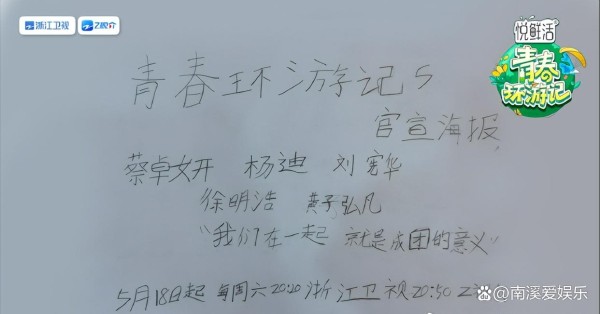 浙江卫视 Z视介
悦鲜活
青春环游记
青春环游记5
官宣海报
蔡卓妍 杨迪 刘宪华
徐明浩 黄子弘凡
“我们在一起 就是成团的意义”
5月18日起 每周六20:20 浙江卫视 20:50 Z
@南溪爱娱乐